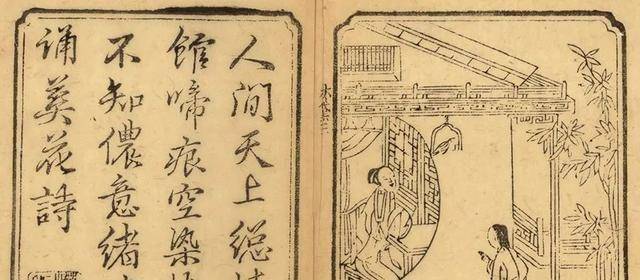 人間天上總
館啼痕空染
不知儂意緒
誦葬花詩